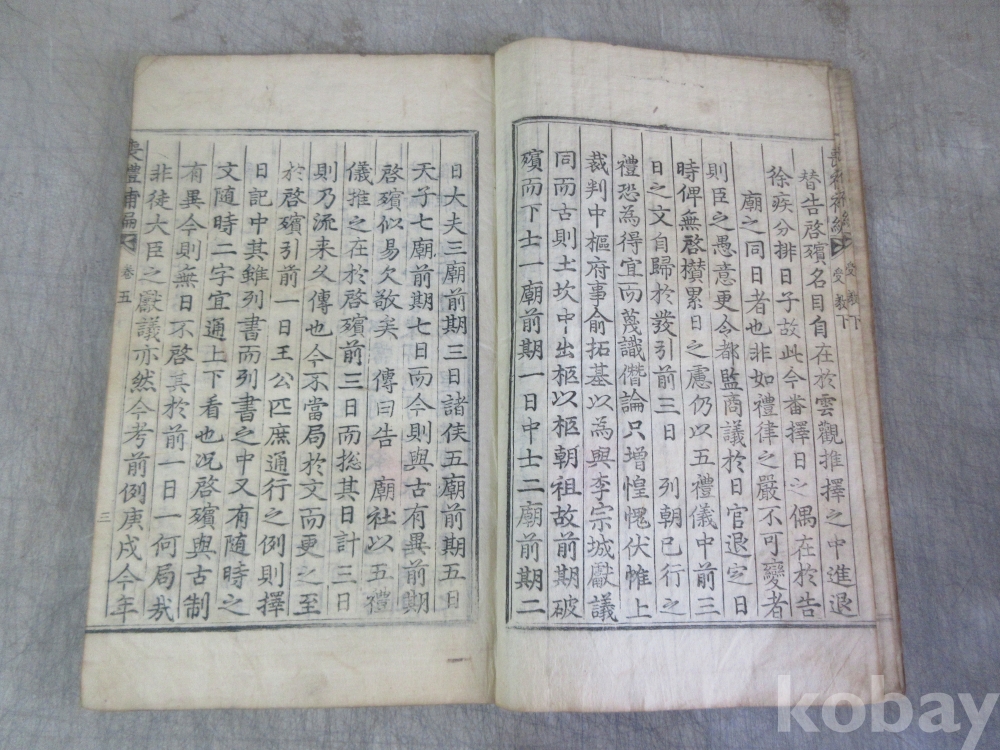 替告啓殯名目自在於雲觀推擇之中進退
徐疾分排日子故此今番擇日之偶在於告
廟之同日者也非如禮律之嚴不可變者
則臣之愚意更令都監商議於日官退定日
時俾無啓欑累日之慮仍以五禮儀中前三
日之文自歸於發引前三日 列朝已行之
禮恐為得宜而蔑識僭論只增惶愧伏惟上
裁判中樞府事俞拓基以為與李宗城獻議
同而古則士坎中出柩以柩朝祖故前期破
殯而下士一廟前期一日中士二廟前期二
日大夫三廟前期三日諸侯五廟前期五日
天子七廟前期七日而今則與古有異前期
啓殯似易欠敬矣 傳曰告 廟社以五禮
儀推之在於啓殯前三日而捴其日計三日
則乃流來父傳也今不當局於文而更之至
於啓殯引前一日王公匹庶通行之例則擇
日記中其雖列書而列書之中又有隨時之
文隨時二字宜通上下看也况啓殯與古制
有異今則無日不啓其於前一日一何局哉
非徒大臣之獻議亦然今考前例庚戌今年
喪禮補編
卷五
三
受教下
kobay